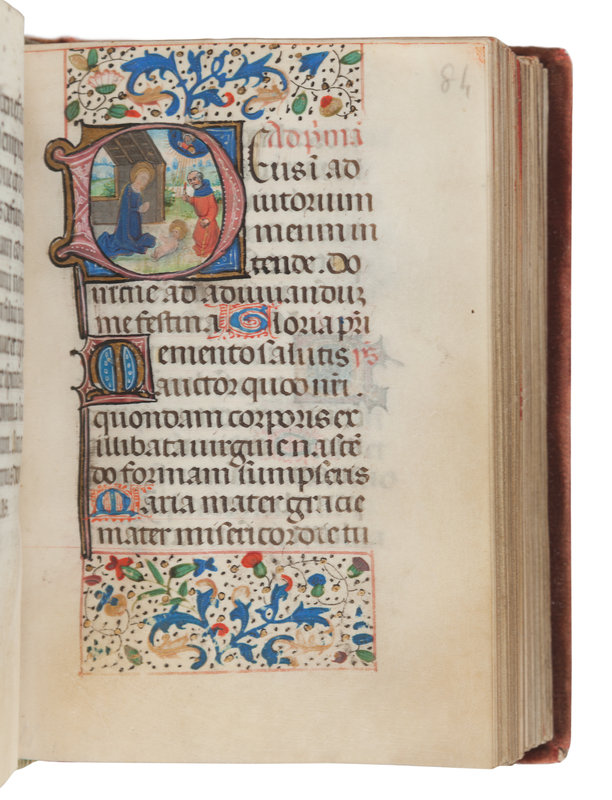 84
Ad p̄ma
Deus ī ad
iutorium
meum in
tende. Do
mine ad adiuuanduz
me festina Gloria pr̄i
Memento salutis ps
auctor quod nr̄i.
quondam corporis ex
illibata uirgine nascē
do formam sumpseris
Maria mater gracie
mater misericordie tu